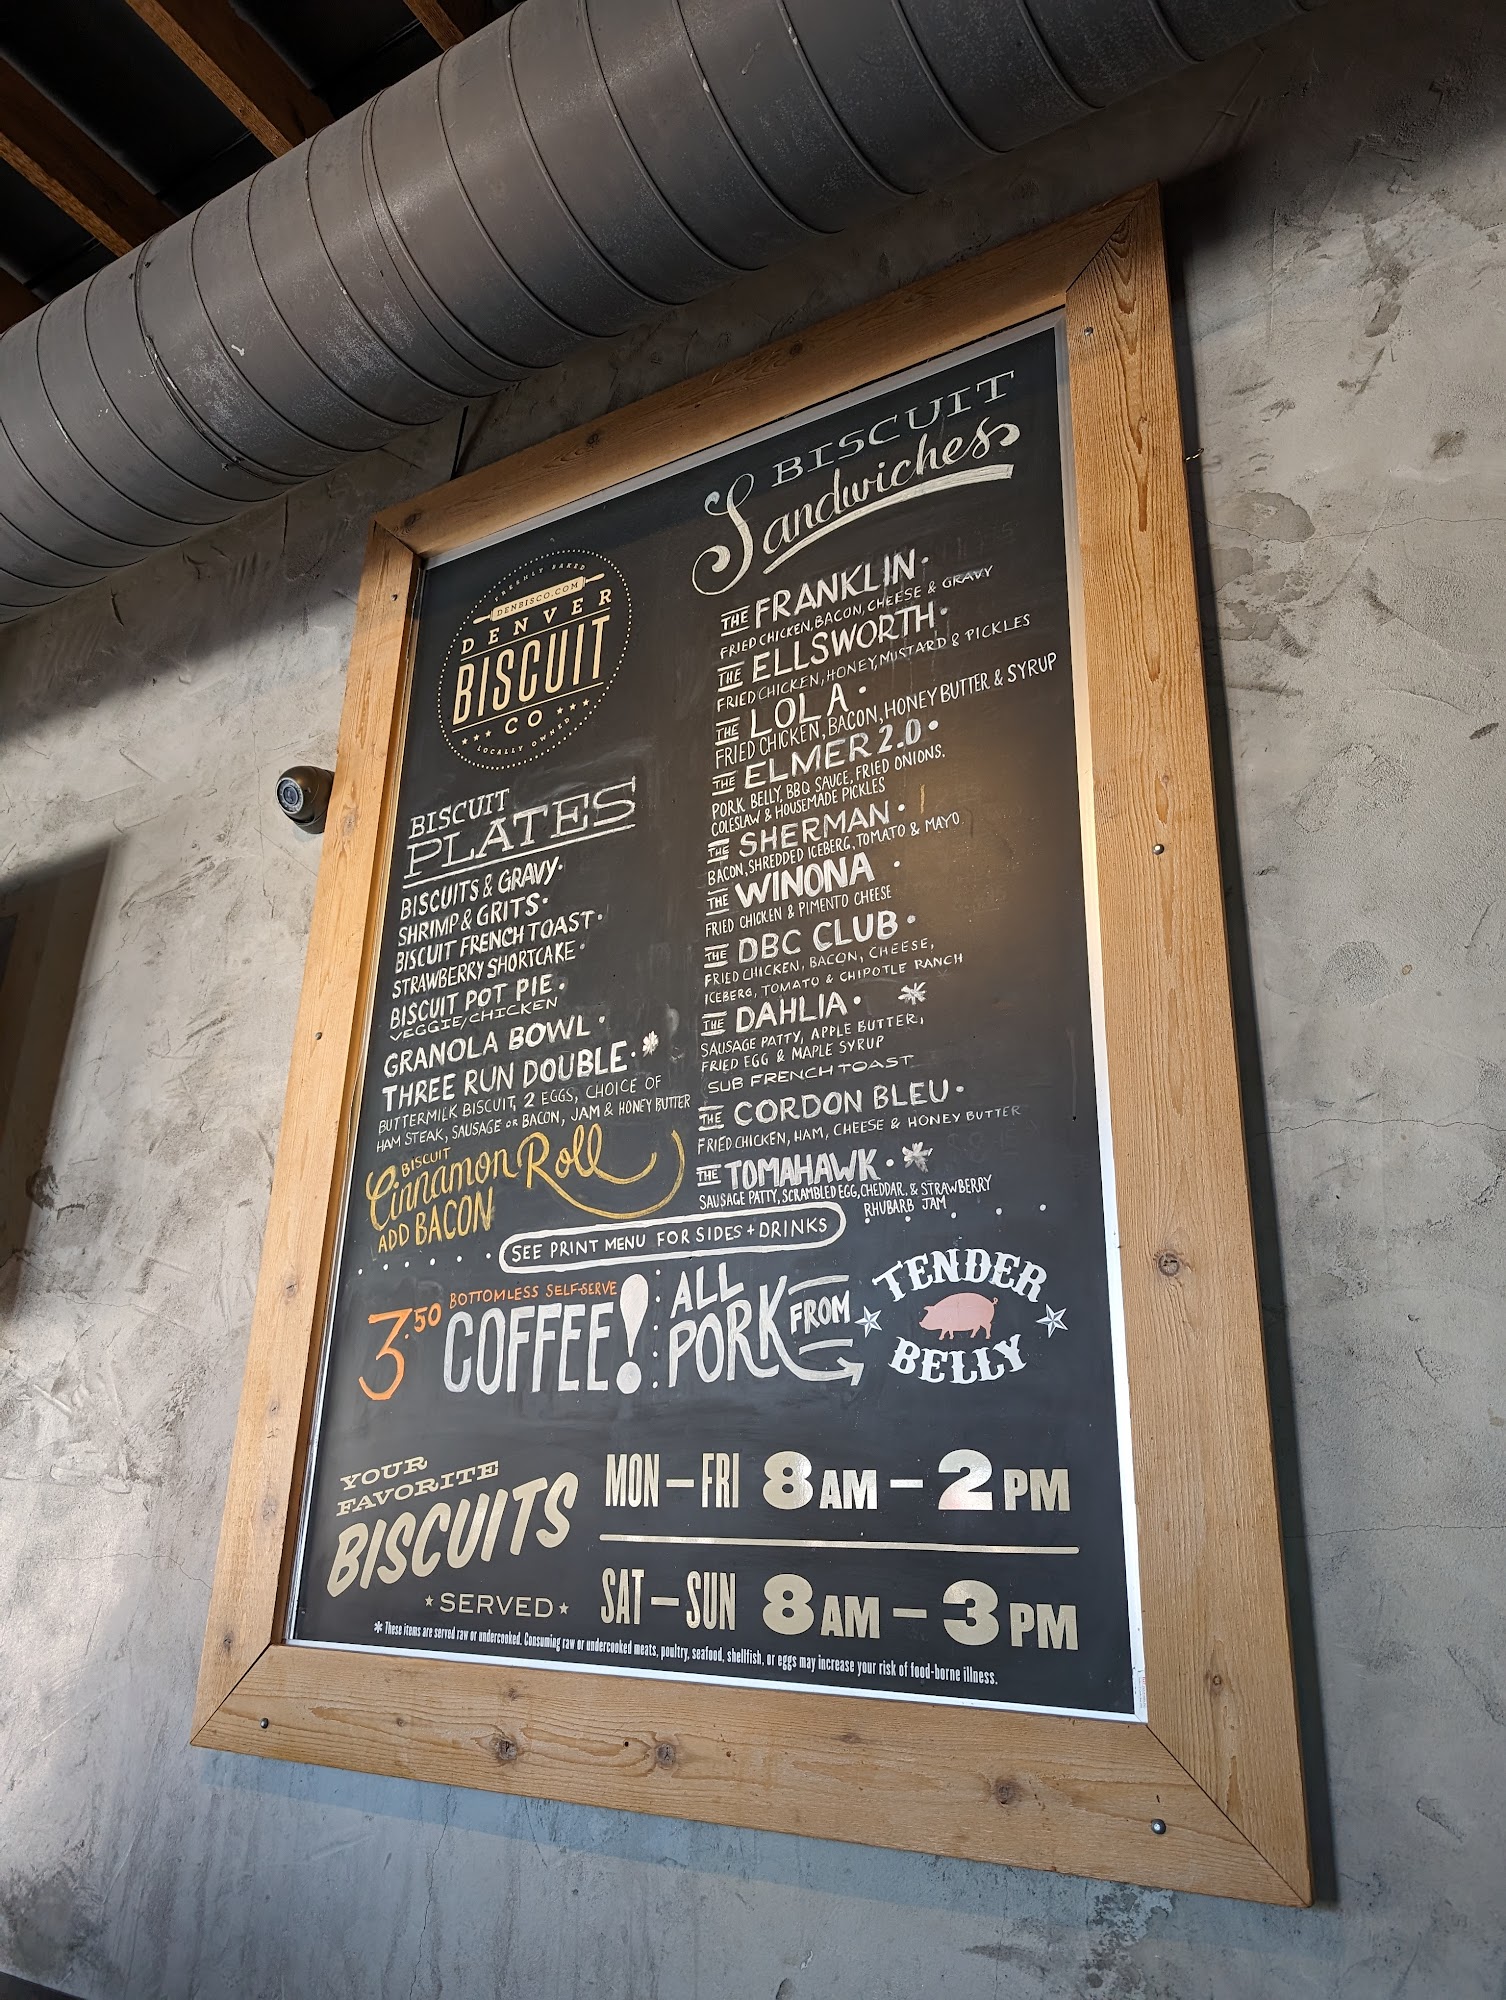 FRESHLY BAKED
DENBISCO.COM
DENVER
BISCUIT
CO
LOCALLY OWNED
BISCUIT
PLATES
BISCUITS & GRAVY •
SHRIMP & GRITS •
BISCUIT FRENCH TOAST •
STRAWBERRY SHORTCAKE •
BISCUIT POT PIE •
VEGGIE/CHICKEN
GRANOLA BOWL •
THREE RUN DOUBLE • *
BUTTERMILK BISCUIT, 2 EGGS, CHOICE OF
HAM STEAK, SAUSAGE OR BACON, JAM & HONEY BUTTER
BISCUIT
Cinnamon Roll
ADD BACON
BISCUIT
Sandwiches
THE FRANKLIN •
FRIED CHICKEN, BACON, CHEESE & GRAVY
THE ELLSWORTH •
FRIED CHICKEN, HONEY, MUSTARD & PICKLES
THE LOLA •
FRIED CHICKEN, BACON, HONEY BUTTER & SYRUP
THE ELMER 2.0 •
PORK BELLY, BBQ SAUCE, FRIED ONIONS,
COLESLAW & HOUSEMADE PICKLES
THE SHERMAN •
BACON, SHREDDED ICEBERG, TOMATO & MAYO
THE WINONA •
FRIED CHICKEN & PIMENTO CHEESE
THE DBC CLUB •
FRIED CHICKEN, BACON, CHEESE,
ICEBERG, TOMATO & CHIPOTLE RANCH
THE DAHLIA • *
SAUSAGE PATTY, APPLE BUTTER,
FRIED EGG & MAPLE SYRUP
SUB FRENCH TOAST
THE CORDON BLEU •
FRIED CHICKEN, HAM, CHEESE & HONEY BUTTER
THE TOMAHAWK • *
SAUSAGE PATTY, SCRAMBLED EGG, CHEDDAR, & STRAWBERRY
RHUBARB JAM
SEE PRINT MENU FOR SIDES + DRINKS
3.50 BOTTOMLESS SELF-SERVE
COFFEE!
ALL
PORK FROM
TENDER
BELLY
YOUR
FAVORITE
BISCUITS
SERVED
MON — FRI 8 AM – 2 PM
SAT — SUN 8 AM – 3 PM
* These items are served raw or undercooked. Consuming raw or undercooked meats, poultry, seafood, shellfish, or eggs may increase your risk of food-borne illness.